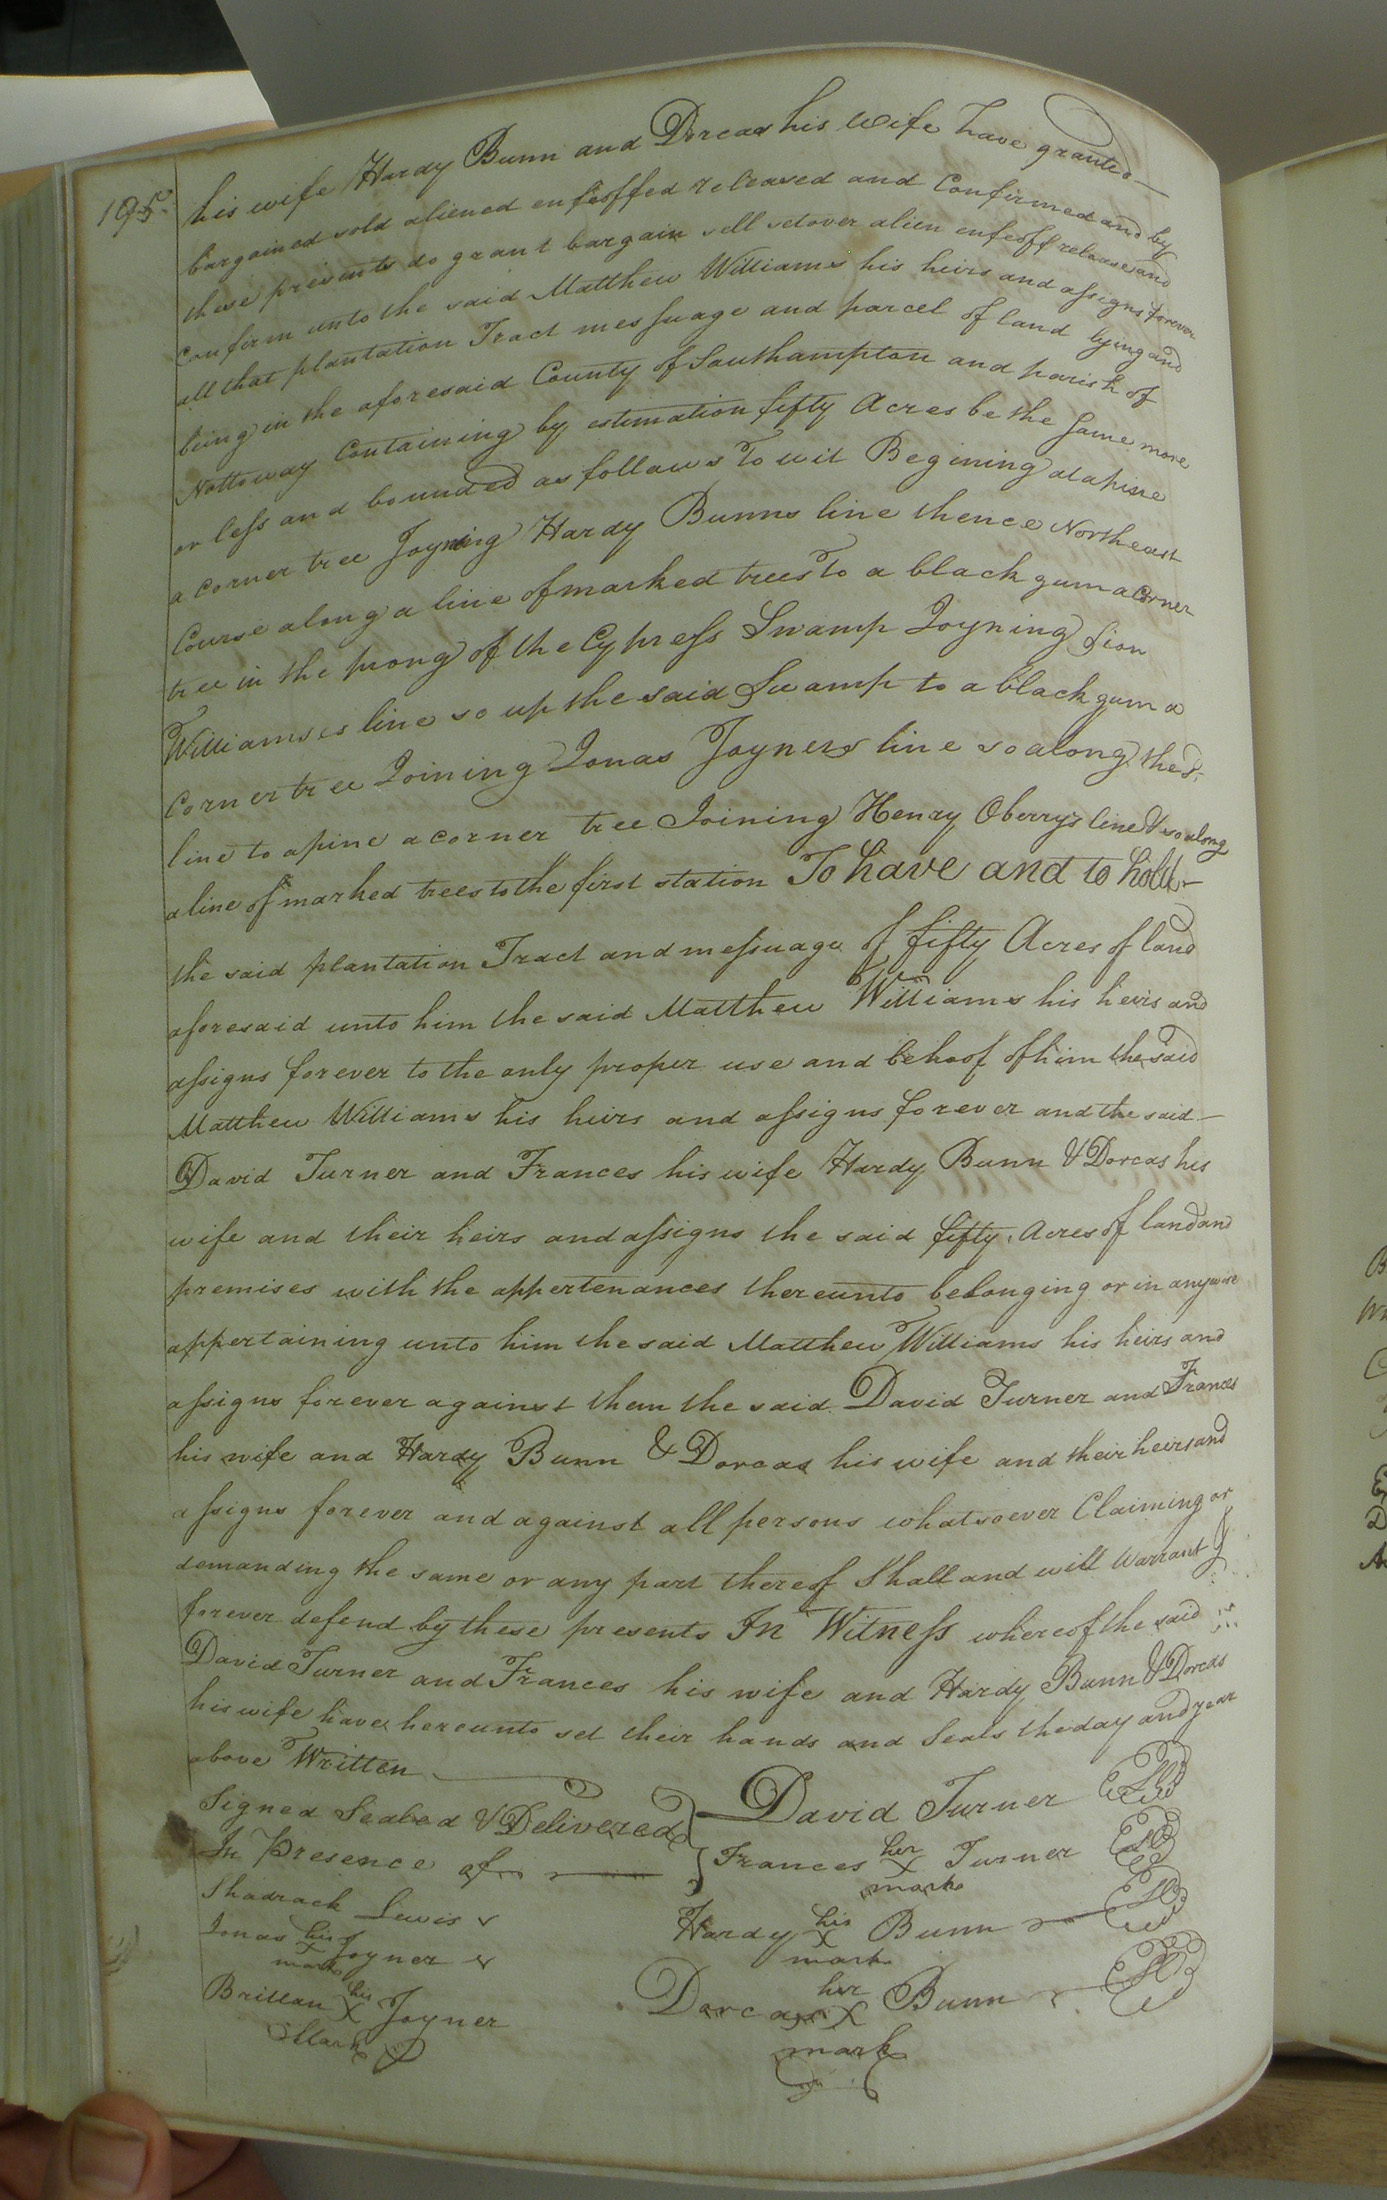 195.
his wife Hardy Bunn and Dorcas his wife have granted
bargained sold aliened enfeoffed released and Confirmed and by
these presents do grant bargain sell setover alien enfeoff release and
Confirm unto the said Matthew Williams his heirs and assigns forever
all that plantation Tract messuage and parcel of land lying and
being in the aforesaid County of Southampton and parish of
Nottoway Containing by estimation fifty Acres be the same more
or less and bounded as follows To wit Begining at a pine
a corner tree Joyning Hardy Bunns line thence Northeast
Course along a line of marked trees To a black gum a Corner
tree in the prong of the Cypress Swamp Joyning
Williamses line so up the said Swamp to a black gum a
Corner tree Joining Jonas Joyners line so along the sd.
line to a pine a corner tree Joining Henry Oberry's line & so along
a line of marked trees to the first station To have and to hold
the said plantation Tract and messuage of fifty Acres of land
aforesaid unto him the said Matthew Williams his heirs and
assigns forever to the only proper use and behoof of him the said
Matthew Williams his heirs and assigns forever and the said
David Turner and Frances his wife Hardy Bunn & Dorcas his
wife and their heirs and assigns the said fifty Acres of land and
premises with the appertenances thereunto belonging or in any wise
appertaining unto him the said Matthew Williams his heirs and
assigns forever against them the said David Turner and Frances
his wife and Hardy Bunn & Dorcas his wife and their heirs and
assigns forever and against all persons whatsoever Claiming or
demanding the same or any part thereof Shall and will Warrant &
forever defend by these presents In Witness whereof the said
David Turner and Frances his wife and Hardy Bunn & Dorcas
his wife have hereunto set their hands and Seals the day and year
above Written
Signed Sealed & Delivered
In Presence of
Shadrack Lewis
Jonas his
mark Joyner
Brittan his X Joyner
Mark
David Turner LS
her
Frances X Turner LS
mark
his
Hardy X Bunn LS
mark
her
Dorcas X Bunn LS
mark